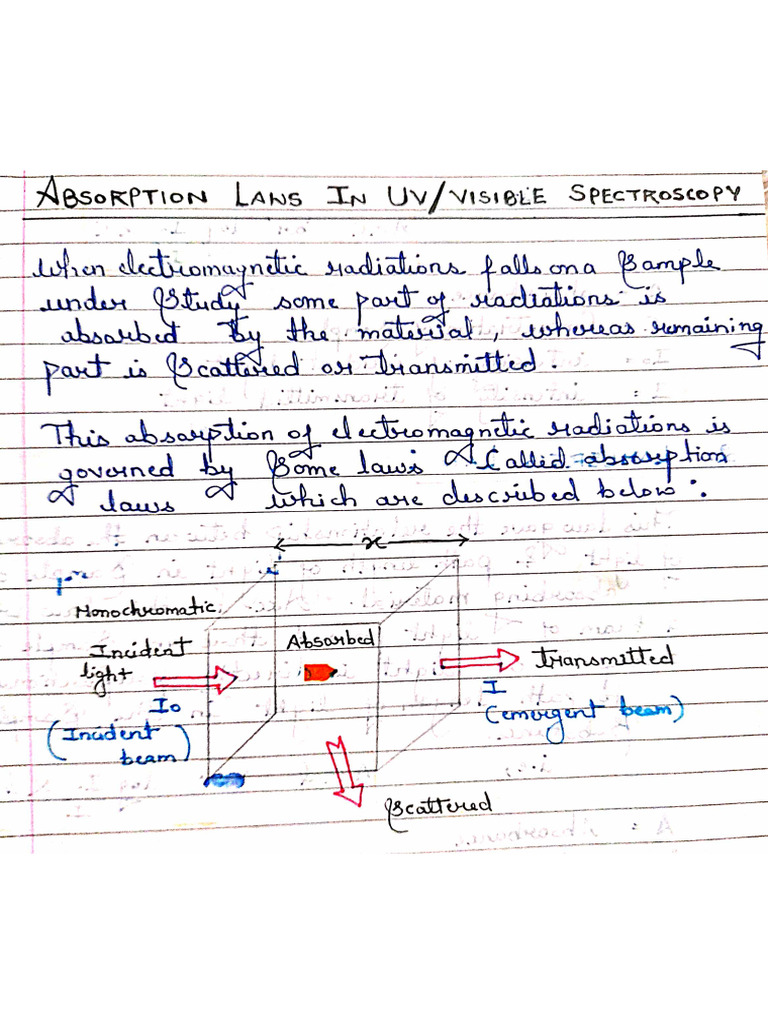 ABSORPTION LAWS IN UV/VISIBLE SPECTROSCOPY
When electromagnetic radiations falls on a Sample
under Study some part of radiations is
absorbed by the material, whereas remaining
part is Scattered or transmitted.
This absorption of electromagnetic radiations is
governed by Some laws Called absorption
laws which are described below:
x
Monochromatic
Incident
light
Absorbed
Transmitted
I₀
(Incident
beam)
I
(emergent beam)
Scattered